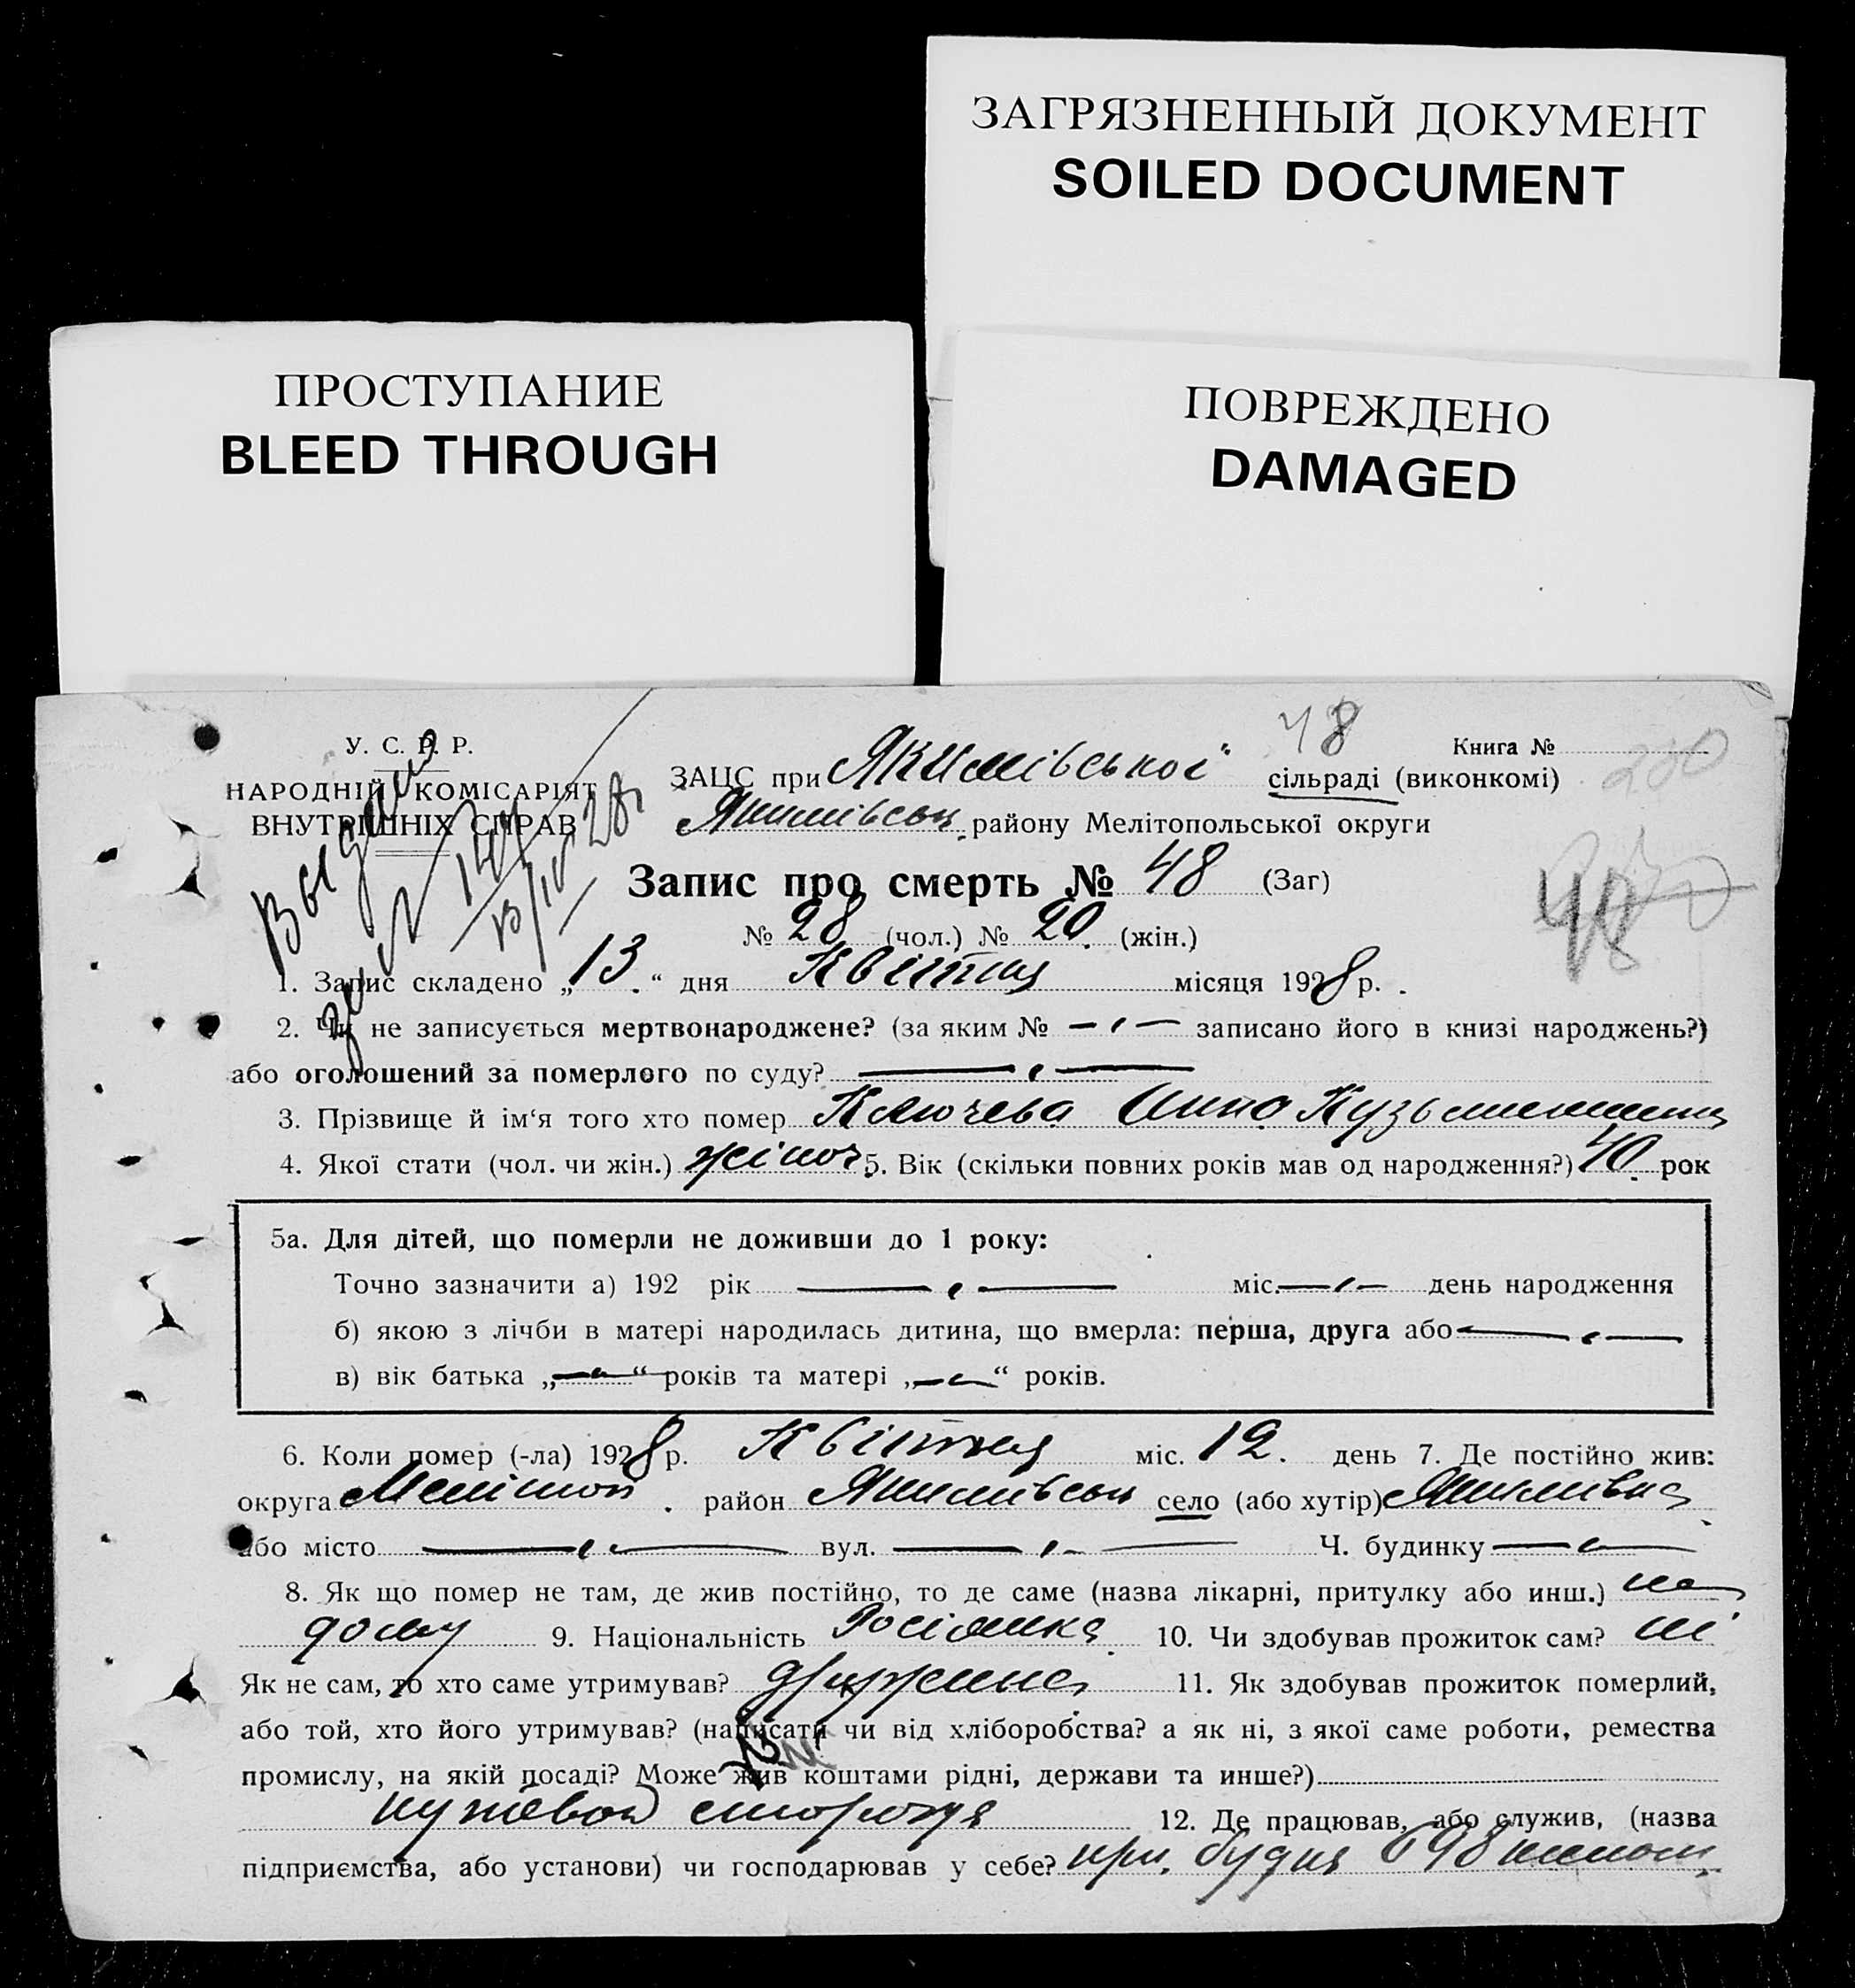 ЗАГРЯЗНЕННЫЙ ДОКУМЕНТ
SOILED DOCUMENT
ПРОСТУПАНИЕ
BLEED THROUGH
ПОВРЕЖДЕНО
DAMAGED
У. С. Р. Р.
НАРОДНІЙ КОМІСАРІЯТ
ВНУТРІШНІХ СПРАВ
48
Книга №
200
ЗАЦС при Якимівської сільраді (виконкомі)
Якимівськ. району Мелітопольської округи
Запис про смерть № 48 (Заг)
48
№ 28 (чол.) № 20 (жін.)
1. Запис складено „13“ дня Квітня місяця 1928 р.
2. Чи не записується мертвонароджене? (за яким № — записано його в книзі народжень?)
або оголошений за померлого по суду? —
3. Прізвище й ім‘я того хто помер Ключева Анна
4. Якої стати (чол. чи жін.) жіноч 5. Вік (скільки повних років мав од народження?) 40 рок
5а. Для дітей, що померли не доживши до 1 року:
Точно зазначити а) 192 рік — міс. — день народження
б) якою з лічби в матері народилась дитина, що вмерла: перша, друга або —
в) вік батька „—“ років та матері „—“ років.
6. Коли помер (-ла) 1928 р. Квітня міс. 12. день 7. Де постійно жив:
округа Меліітоп. район Якимівськ село (або хутір) Якимівка
або місто — вул. — Ч. будинку —
8. Як що помер не там, де жив постійно, то де саме (назва лікарні, притулку або инш.) на
дому 9. Національність Росіянка 10. Чи здобував прожиток сам? ні
Як не сам, то хто саме утримував? дружина 11. Як здобував прожиток померлий,
або той, хто його утримував? (написати чи від хліборобства? а як ні, з якої саме роботи, ремества
промислу, на якій посаді? Може жив коштами рідні, держави та инше?)
путевой сторож 12. Де працював, або служив, (назва
підприємства, або установи) чи господарював у себе? при будц 698
Выдано
за № 13/IV 28